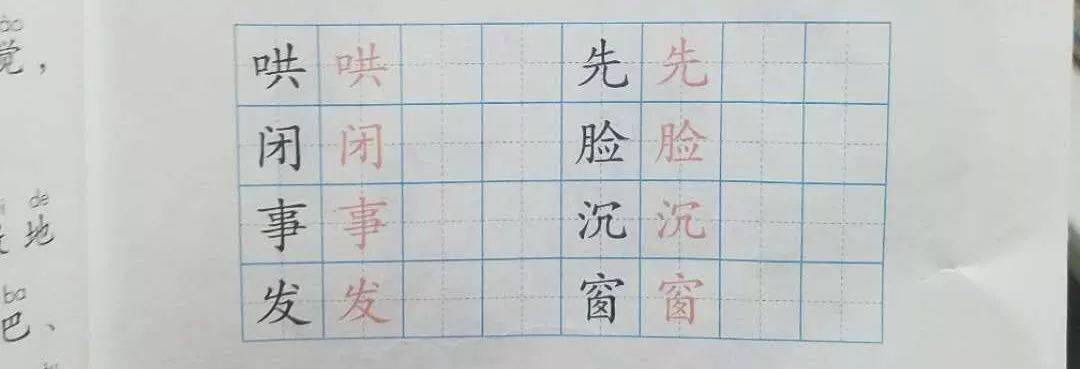 ào
觉，
哄 哄 先 先
闭 闭 脸 脸
de
地
事 事 沉 沉
ba
巴、
发 发 窗 窗